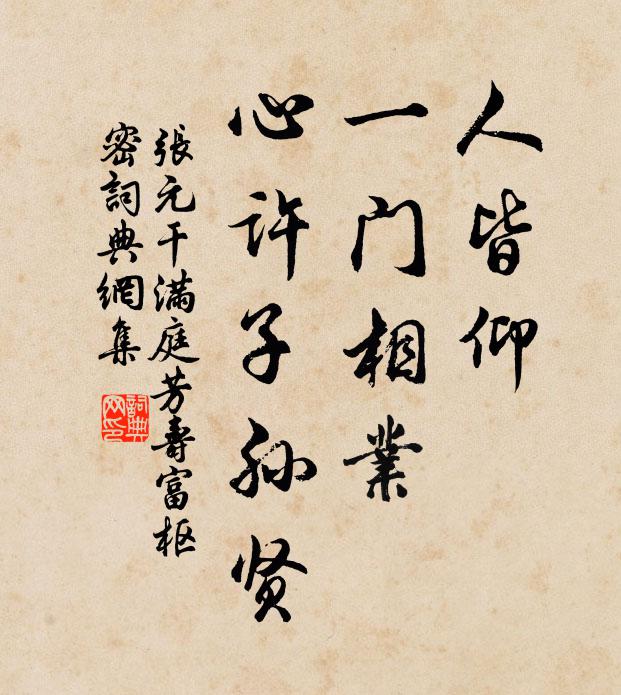 人皆仰
一门相業
心许子孙贤
張元干満庭芳寿富枢
密詞典網集
詞典网印